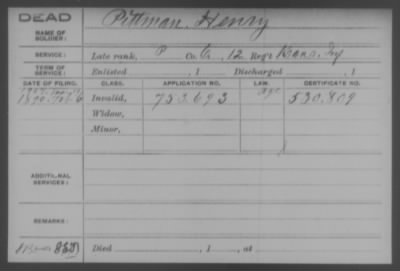 DEAD
NAME OF SOLDIER:
Pittman, Henry
SERVICE:
Late rank, P Co. G, 12 Reg't Kans. Inf
TERM OF SERVICE:
Enlisted , 1 Discharged , 1
DATE OF FILING. CLASS. APPLICATION NO. LAW. CERTIFICATE NO.
Age
1890 Feb 6 Invalid, 753.693 530.809
Widow,
Minor,
ADDITIONAL SERVICES:
REMARKS:
Died , 1 , at